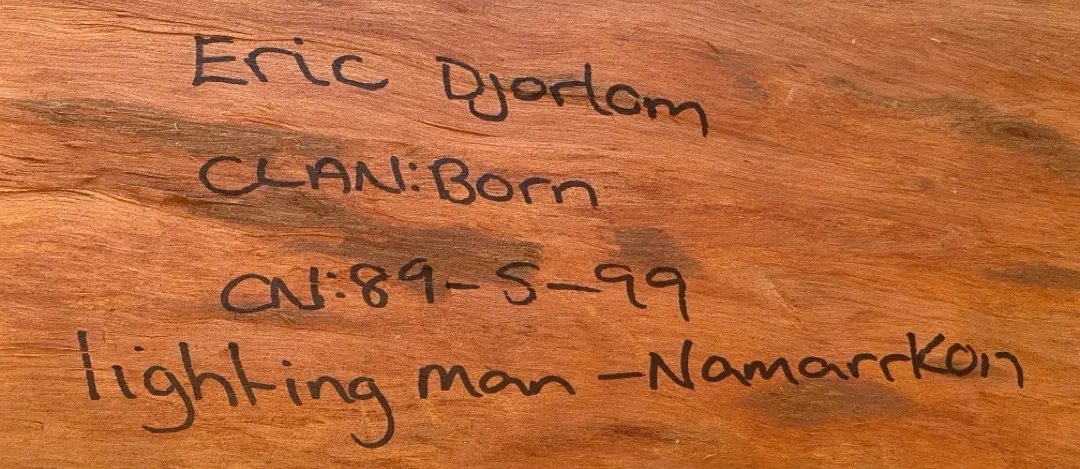 Eric Djorlom
CLAN:Born
CN:89-S-99
lighting man -Namarrkon